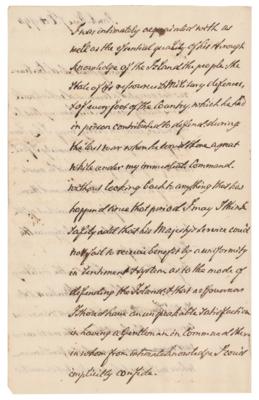 I was intimately acquainted with as
well as the essential quality of his thorough
knowledge of the Island, the people, the
State of its resources & Military defences,
& of every foot of the Country, which he had
in person contributed to defend during
the last war when he was there a great
while under my immediate Command.
without looking back to anything that has
happened since that period I may I think
safely add that his Majesty's Service could
not fail to receive benefit by a uniformity
in Sentiment & System as to the mode of
defending the Island, & that as Governor
I should have an unspeakable Satisfaction
in having a Gentleman in Command there
in whom from intimate knowledge I could
implicitly confide.